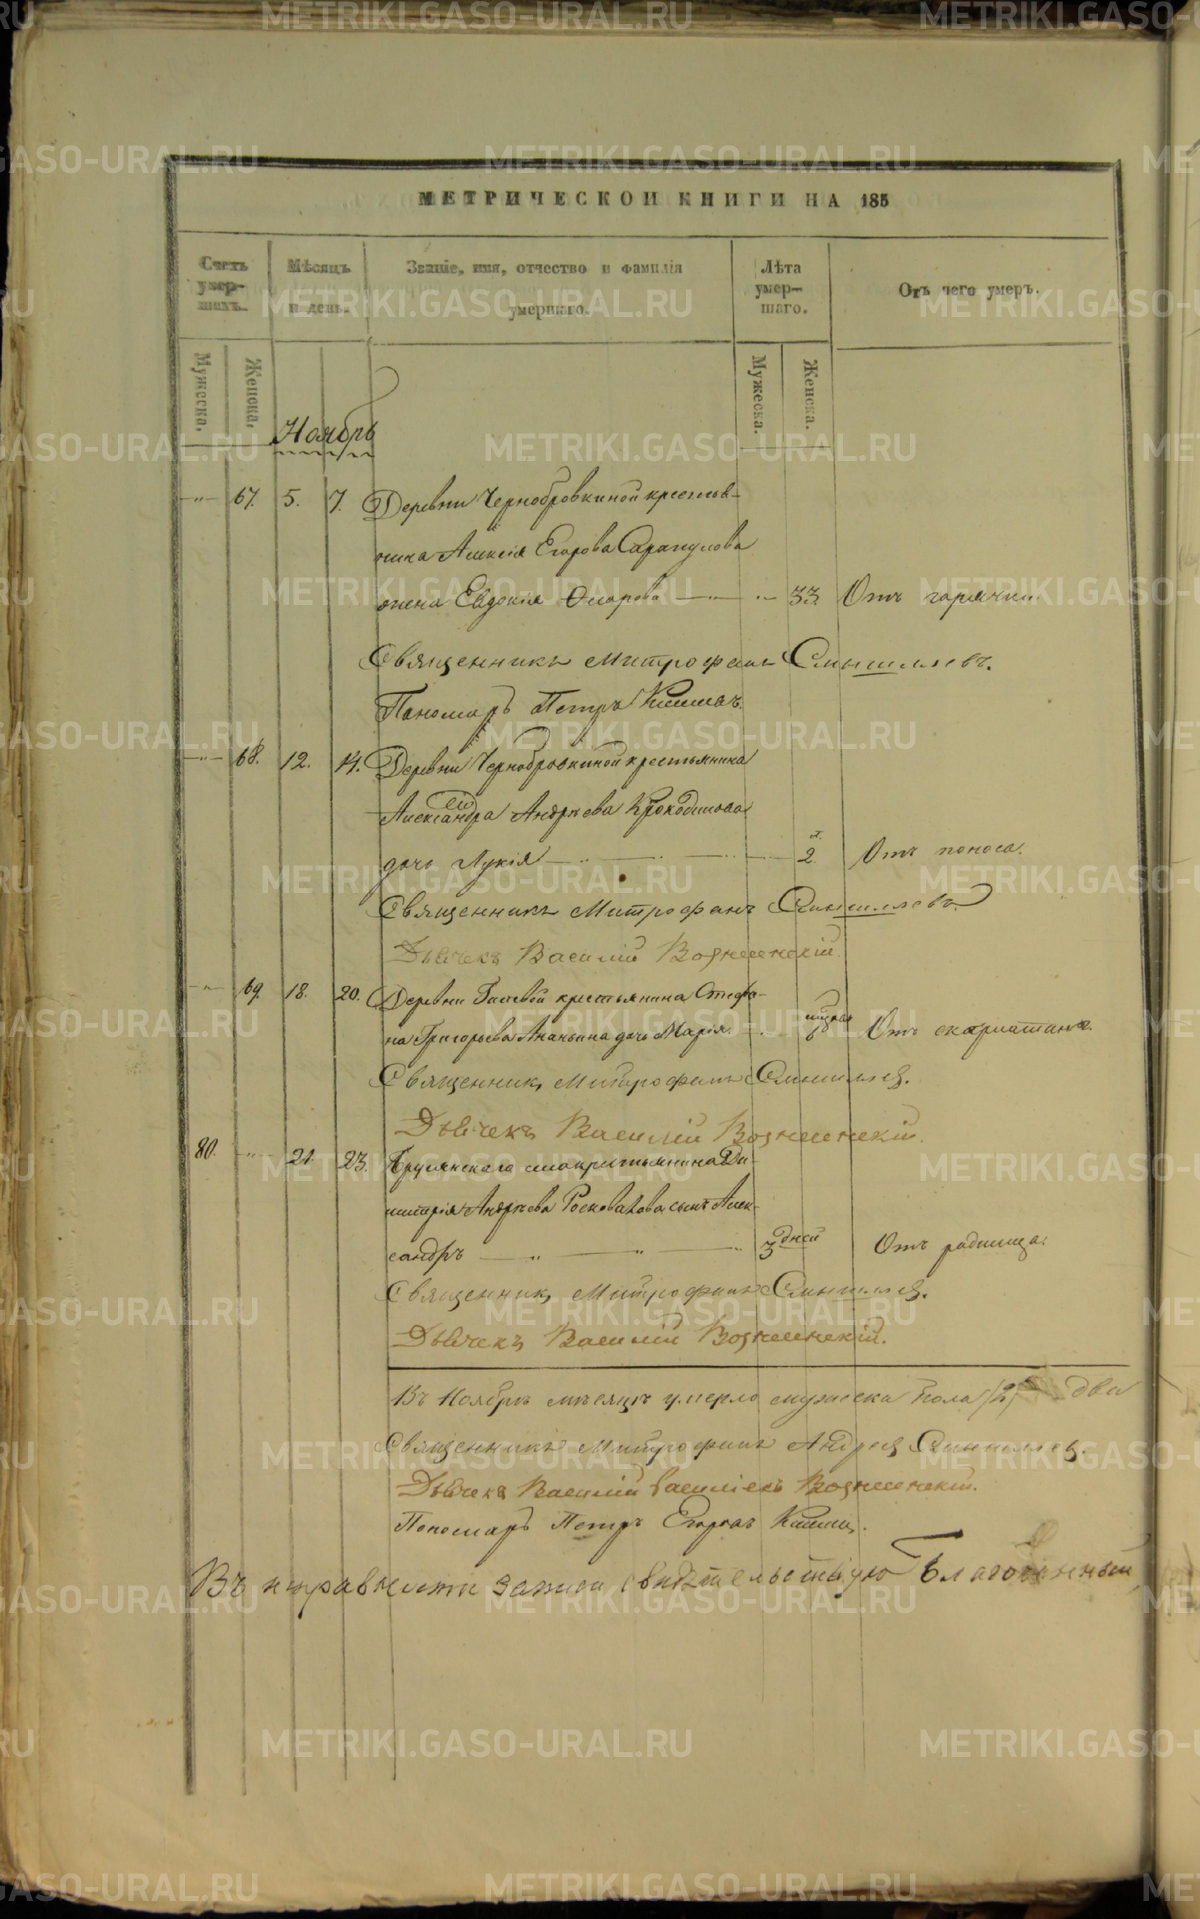 МЕТРИЧЕСКОЙ КНИГИ НА 185
Счетъ умер-шихъ.
Мѣсяцъ и день.
Званіе, имя, отчество и фамилія умершаго.
Лѣта умер-шаго.
Отъ чего умеръ.
Мужеска. Женска.
Мужеска. Женска.
Ноябрь
67. 5. 7. Деревни Чернобровкиной крестья-
нина Алексія Егорова Сарапулова
жена Евдокія 33. Отъ горячки.
Священникъ Митрофанъ Смышляевъ.
Пономарь Петръ
68. 12. 14. Деревни Чернобровкиной крестьянина
Александра Андреева
дочь Лукія 2. Отъ поноса.
Священникъ Митрофанъ Смышляевъ
Дьячекъ Василій Вознесенскій.
69. 18. 20. Деревни крестьянина Стефа-
на Григорьева Ананьина дочь Марія. 6 Отъ скарлатины.
Священникъ Митрофанъ Смышляев.
Дьячекъ Василій Вознесенскій.
80. 21. 23. Брусянскаго села крестьянина Ди-
митрія Андреева сынъ Алек-
сандръ 3 дней Отъ родимца.
Священникъ Митрофанъ Смышляев.
Дьячекъ Василій Вознесенскій.
Въ Ноябрѣ мѣсяцѣ умерло мужеска пола /2/ два
Священникъ Митрофанъ Андреев Смышляев.
Дьячекъ Василій Васильевъ Вознесенскій.
Пономарь Петръ Егоровъ
Въ исправности записи свидѣтельствую Благочинный
METRIKI.GASO-URAL.RU